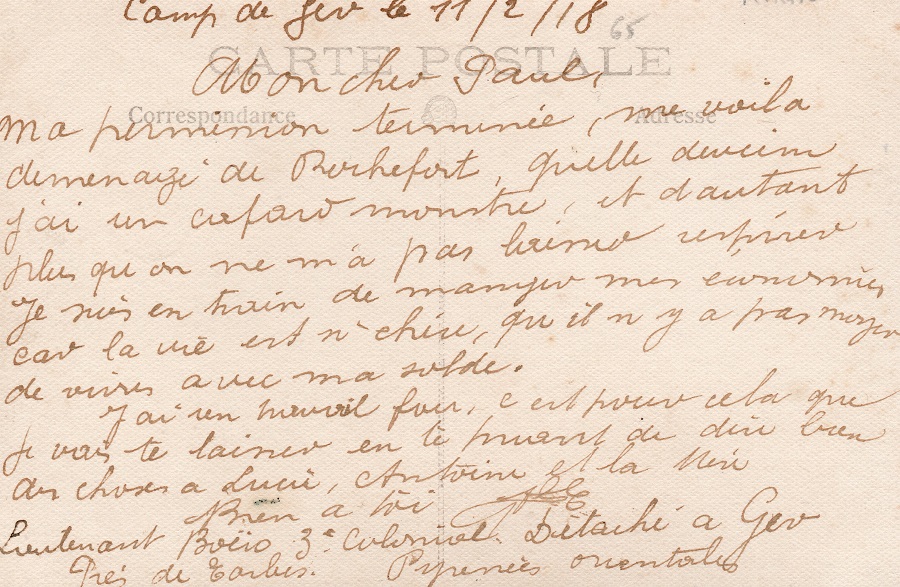 Camp de Ger le 11/2/18
65
CARTE POSTALE
Mon cher Paul,
Correspondance
Adresse
Ma permission terminée, me voila
demenagé de Rochefort, quelle deveine
j'ai un cafard monstre, et d'autant
plus qu on ne m'a pas laisser respirer
Je suis en train de manger mes economies
car la vie est si chère, qu il n y a pas moyen
de vivre avec ma solde.
J'ai un travail fou, c est pour cela que
je vais te laisser en te priant de dire bien
des choses a Lucie, Antoine et la Mère
Bien a toi
Lieutenant 3e Colonial. Détaché a Ger
Près de Tarbes. Pyrenées orientales